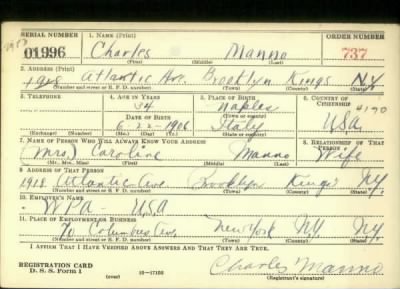 SERIAL NUMBER 1. NAME (Print) ORDER NUMBER
01996 Charles Manno 737
(First) (Middle) (Last)
2. ADDRESS (Print)
Atlantic Ave. Brooklyn Kings N.Y.
(Number and street or R. F. D. number) (Town) (County) (State)
3. TELEPHONE 4. AGE IN YEARS 5. PLACE OF BIRTH 6. COUNTRY OF CITIZENSHIP
34 Naples
(Town or county)
DATE OF BIRTH
6-22-1906 Italy USA
(Exchange) (Number) (Mo.) (Day) (Yr.) (State or country)
7. NAME OF PERSON WHO WILL ALWAYS KNOW YOUR ADDRESS 8. RELATIONSHIP OF THAT PERSON
Mrs. Caroline Manno Wife
(Mr., Mrs., Miss) (First) (Middle) (Last)
9. ADDRESS OF THAT PERSON
1918 Atlantic Ave Brooklyn Kings N.Y.
(Number and street or R. F. D. number) (Town) (County) (State)
10. EMPLOYER'S NAME
WPA - USA
11. PLACE OF EMPLOYMENT OR BUSINESS
70 Columbus Ave New York NY NY.
(Number and street or R. F. D. number) (Town) (County) (State)
I AFFIRM THAT I HAVE VERIFIED ABOVE ANSWERS AND THAT THEY ARE TRUE.
REGISTRATION CARD
D. S. S. Form 1 (over) 16-17105
Charles Manno
(Registrant's signature)